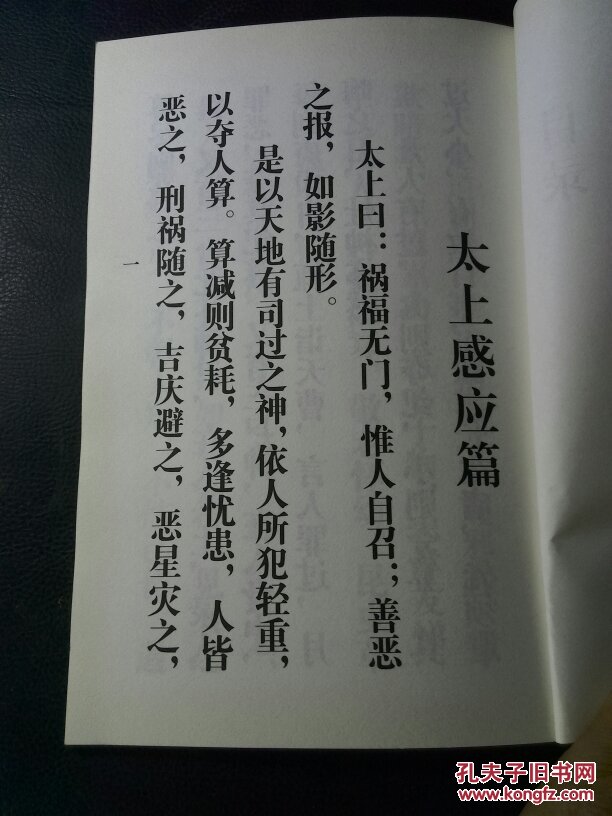 太上感应篇
太上曰：祸福无门，惟人自召；善恶
之报，如影随形。
是以天地有司过之神，依人所犯轻重，
以夺人算。算减则贫耗，多逢忧患，人皆
恶之，刑祸随之，吉庆避之，恶星灾之，
一
孔夫子旧书网
www.kongfz.com